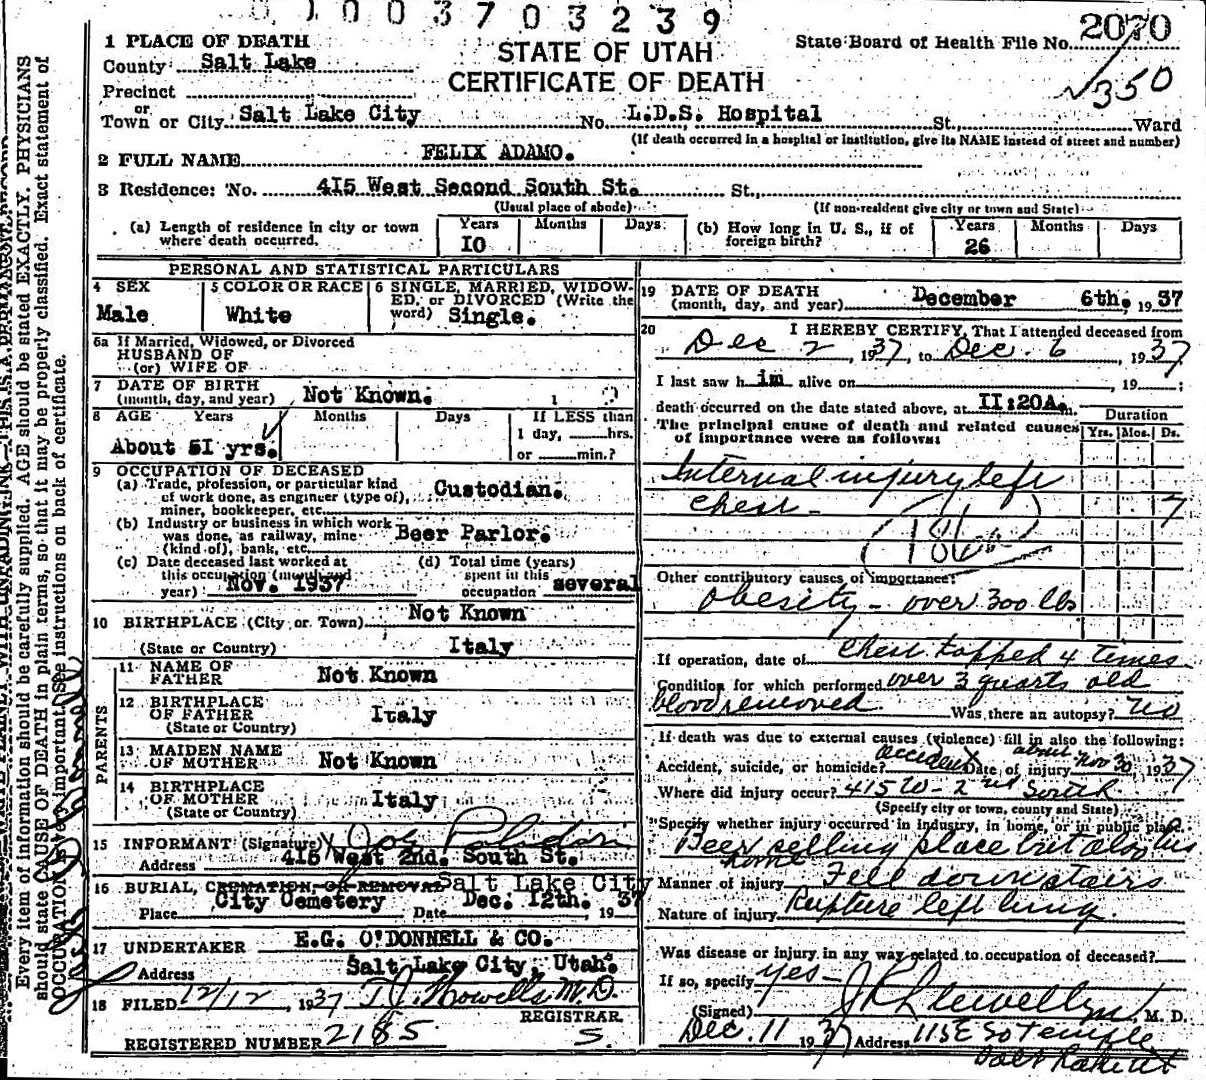 0 1 0 0 3 7 0 3 2 3 9
2070
State Board of Health File No.
350
STATE OF UTAH
CERTIFICATE OF DEATH
1 PLACE OF DEATH
County Salt Lake
Precinct
or
Town or City Salt Lake City No. L.D.S. Hospital St., Ward
(If death occurred in a hospital or institution, give its NAME instead of street and number)
2 FULL NAME FELIX ADAMO.
3 Residence: No. 415 West Second South St. St.,
(Usual place of abode) (If non-resident give city or town and State)
(a) Length of residence in city or town where death occurred. Years 10 Months Days
(b) How long in U. S., if of foreign birth? Years 26 Months Days
PERSONAL AND STATISTICAL PARTICULARS
4 SEX Male
5 COLOR OR RACE White
6 SINGLE, MARRIED, WIDOWED, or DIVORCED (Write the word) Single.
6a If Married, Widowed, or Divorced
HUSBAND OF
(or) WIFE OF
7 DATE OF BIRTH
(month, day, and year) Not Known. 1 ?
8 AGE Years Months Days If LESS than
1 day, hrs.
or min.?
About 51 yrs.
9 OCCUPATION OF DECEASED
(a) Trade, profession, or particular kind of work done, as engineer (type of), miner, bookkeeper, etc. Custodian.
(b) Industry or business in which work was done, as railway, mine (kind of), bank, etc. Beer Parlor.
(c) Date deceased last worked at this occupation (month and year) Nov. 1937
(d) Total time (years) spent in this occupation several
10 BIRTHPLACE (City or Town) Not Known
(State or Country) Italy
PARENTS
11 NAME OF FATHER Not Known
12 BIRTHPLACE OF FATHER
(State or Country) Italy
13 MAIDEN NAME OF MOTHER Not Known
14 BIRTHPLACE OF MOTHER
(State or Country) Italy
15 INFORMANT (Signature) X Joe
Address 415 West 2nd. South St.
16 BURIAL, CREMATION, OR REMOVAL Salt Lake City
Place City Cemetery Date Dec. 12th. 1937
17 UNDERTAKER E.G. O'DONNELL & CO.
Address Salt Lake City, Utah.
18 FILED 12/12, 1937 T.J. Howells M.D.
REGISTRAR
REGISTERED NUMBER 2185 S.
19 DATE OF DEATH
(month, day, and year) December 6th. 1937
20 I HEREBY CERTIFY, That I attended deceased from
Dec 2, 1937, to Dec. 6, 1937
I last saw him alive on , 19 ;
death occurred on the date stated above, at 11:20A.m.
The principal cause of death and related causes of importance were as follows:
Duration
Yrs. Mos. Ds.
Internal injury left
chest - 7
Other contributory causes of importance:
Obesity - over 300 lbs
If operation, date of Chest tapped 4 times
Condition for which performed over 3 quarts old
blood removed Was there an autopsy? no
If death was due to external causes (violence) fill in also the following:
Accident, suicide, or homicide? accident Date of injury about nov 30 1937
Where did injury occur? 415 W - 2nd South
(Specify city or town, county and State)
Specify whether injury occurred in industry, in home, or in public place.
Beer selling place but also his
home
Manner of injury Fell down stairs
Nature of injury Rupture left lung.
Was disease or injury in any way related to occupation of deceased?
If so, specify yes -
(Signed) J R Llewellyn, M. D.
Dec. 11 1937 Address 115 E So Temple
Salt Lake Ut
Every item of information should be carefully supplied. AGE should be stated EXACTLY. PHYSICIANS
should state CAUSE OF DEATH in plain terms, so that it may be properly classified. Exact statement of
OCCUPATION is very important. See instructions on back of certificate.